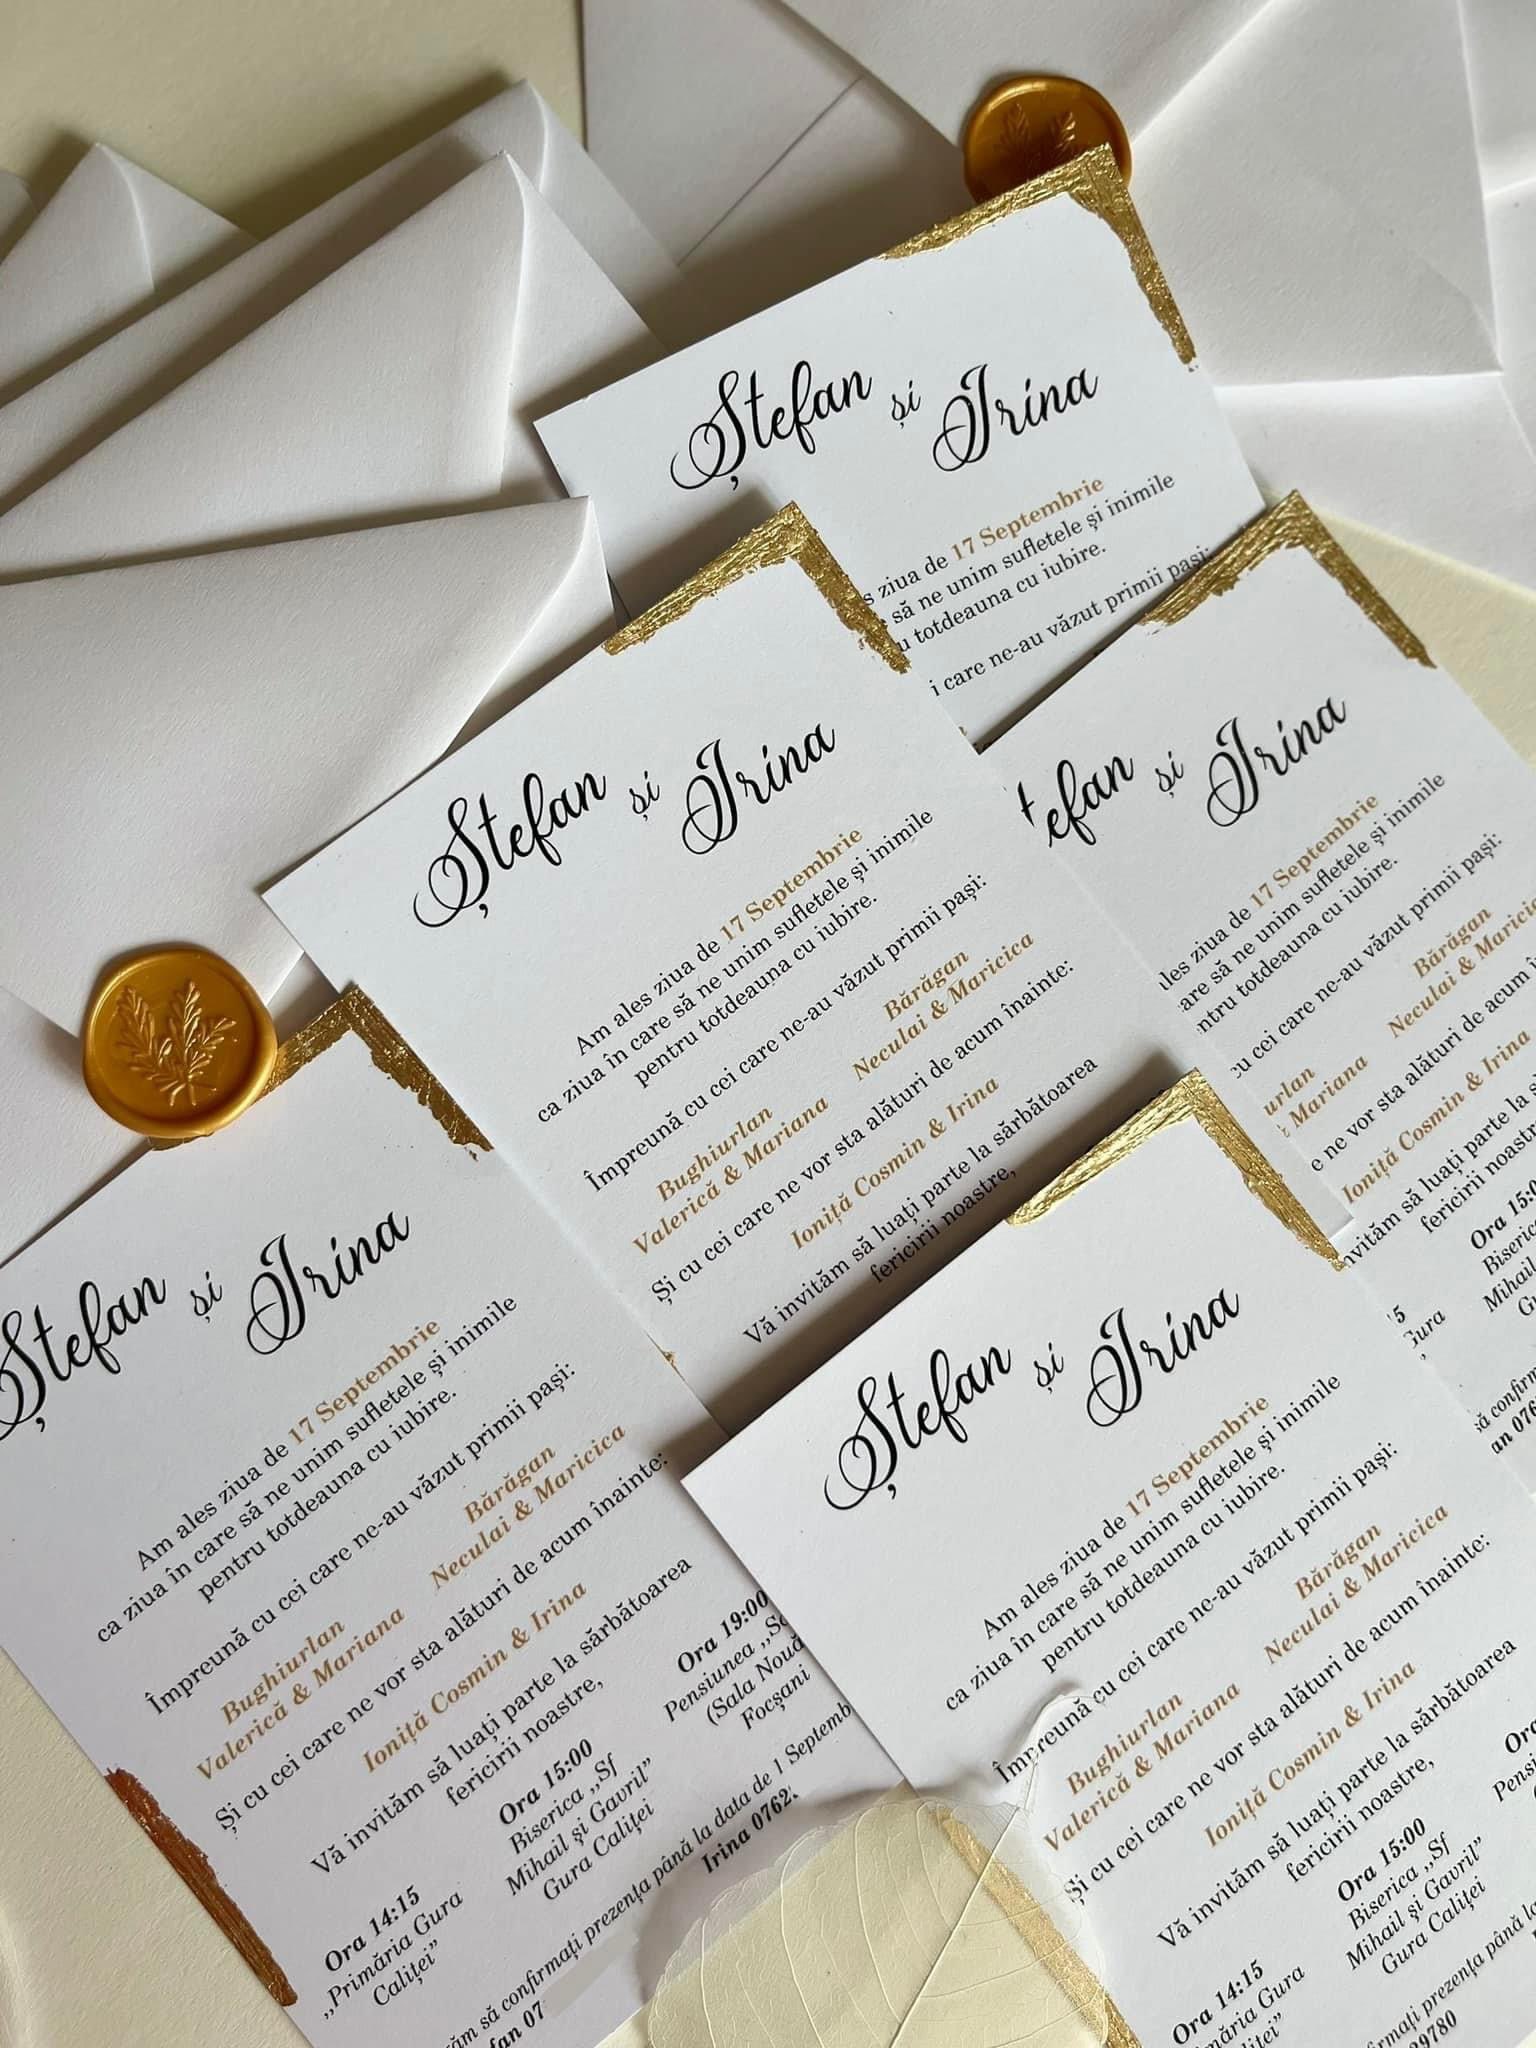 Ștefan și Irina
ziua de 17 Septembrie
să ne unim sufletele și inimile
totdeauna cu iubire.
i care ne-au văzut primii pași:
Ștefan și Irina
Am ales ziua de 17 Septembrie
ca ziua în care să ne unim sufletele și inimile
pentru totdeauna cu iubire.
Împreună cu cei care ne-au văzut primii pași:
Bughiurlan
Valerică & Mariana
Bărăgan
Neculai & Maricica
Și cu cei care ne vor sta alături de acum înainte:
Ioniță Cosmin & Irina
Vă invităm să luați parte la sărbătoarea
fericirii noastre,
tefan și Irina
les ziua de 17 Septembrie
are să ne unim sufletele și inimile
ntru totdeauna cu iubire.
cu cei care ne-au văzut primii pași:
urlan
Mariana
Bărăgan
Neculai & Marici
e ne vor sta alături de acum
Ioniță Cosmin & Irina
nvităm să luați parte la
fericirii noastre
Ora 15:0
Biserica
Mihail
Gura
să confirm
an 076
Ștefan și Irina
Am ales ziua de 17 Septembrie
ca ziua în care să ne unim sufletele și inimile
pentru totdeauna cu iubire.
Împreună cu cei care ne-au văzut primii pași:
Bughiurlan
Valerică & Mariana
Bărăgan
Neculai & Maricica
Și cu cei care ne vor sta alături de acum înainte:
Ioniță Cosmin & Irina
Vă invităm să luați parte la sărbătoarea
fericirii noastre,
Ora 14:15
,,Primăria Gura
Caliței”
Ora 15:00
Biserica ,,Sf
Mihail și Gavril”
Gura Caliței
Ora 19:00
Pensiunea
(Sala Nouă
Focșani
să confirmați prezența până la data de 1 Septemb
fan 07
Irina 0762
Ștefan și Irina
Am ales ziua de 17 Septembrie
ca ziua în care să ne unim sufletele și inimile
pentru totdeauna cu iubire.
Împreună cu cei care ne-au văzut primii pași:
Bughiurlan
Valerică & Mariana
Bărăgan
Neculai & Maricica
Și cu cei care ne vor sta alături de acum înainte:
Ioniță Cosmin & Irina
Vă invităm să luați parte la sărbătoarea
fericirii noastre,
Ora 14:15
măria Gura
Ora 15:00
Biserica ,,Sf
Mihail și Gavril”
Gura Caliței
Ora
Pensi
firmați prezența până
29780